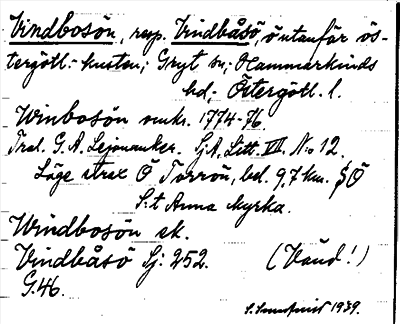 Vindbosön, resp. Vindbåsö, ö utanför ös-
tergötl.-kusten; Gryt sn, Hammarkinds
hd, Östergötl. l.
Winbosön omkr. 1774-76.
Trol. G. A. Lejonanker. Sj.A. Litt. VII. No 12.
Läge strax Ö Torrön, bel. 9,7 km. SÖ
S:t Anna kyrka.
Windbosön ek.
Vindbåsö Sj: 252. (Vaud!)
G.46.
1939.